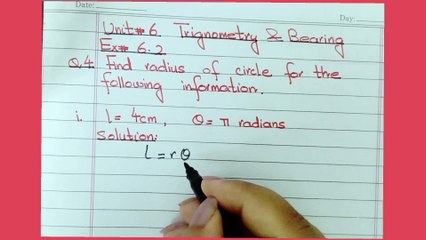 Date:
Day:
Unit# 6. Trignometry & Bearing
Ex# 6.2
Q.4. Find radius of circle for the
following information.
i. l = 4cm, θ = π radians
Solution:
l = rθ